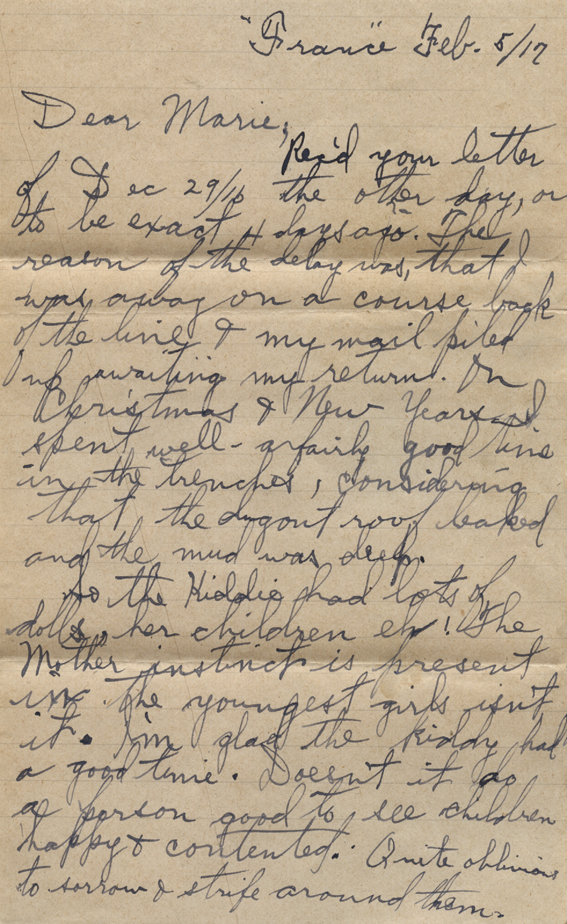 "France" Feb. 5/17
Dear Marie;
Rec'd your letter
of Dec 29/16 the other day, or
to be exact 4 days ago. The
reason of the delay was, that I
was away on a course back
of the line & my mail piled
up awaiting my return. On
Christmas & New Years I
spent well - a fairly good time
in the trenches, considering
that the dugout roof leaked
and the mud was deep.
So the Kiddie had lots of
dolls, her children eh! The
Mother instinct is present
in the youngest girls isn't
it. I'm glad the kiddy had
a good time. Doesn't it do
a person good to see children
happy & contented. Quite oblivious
to sorrow & strife around them.